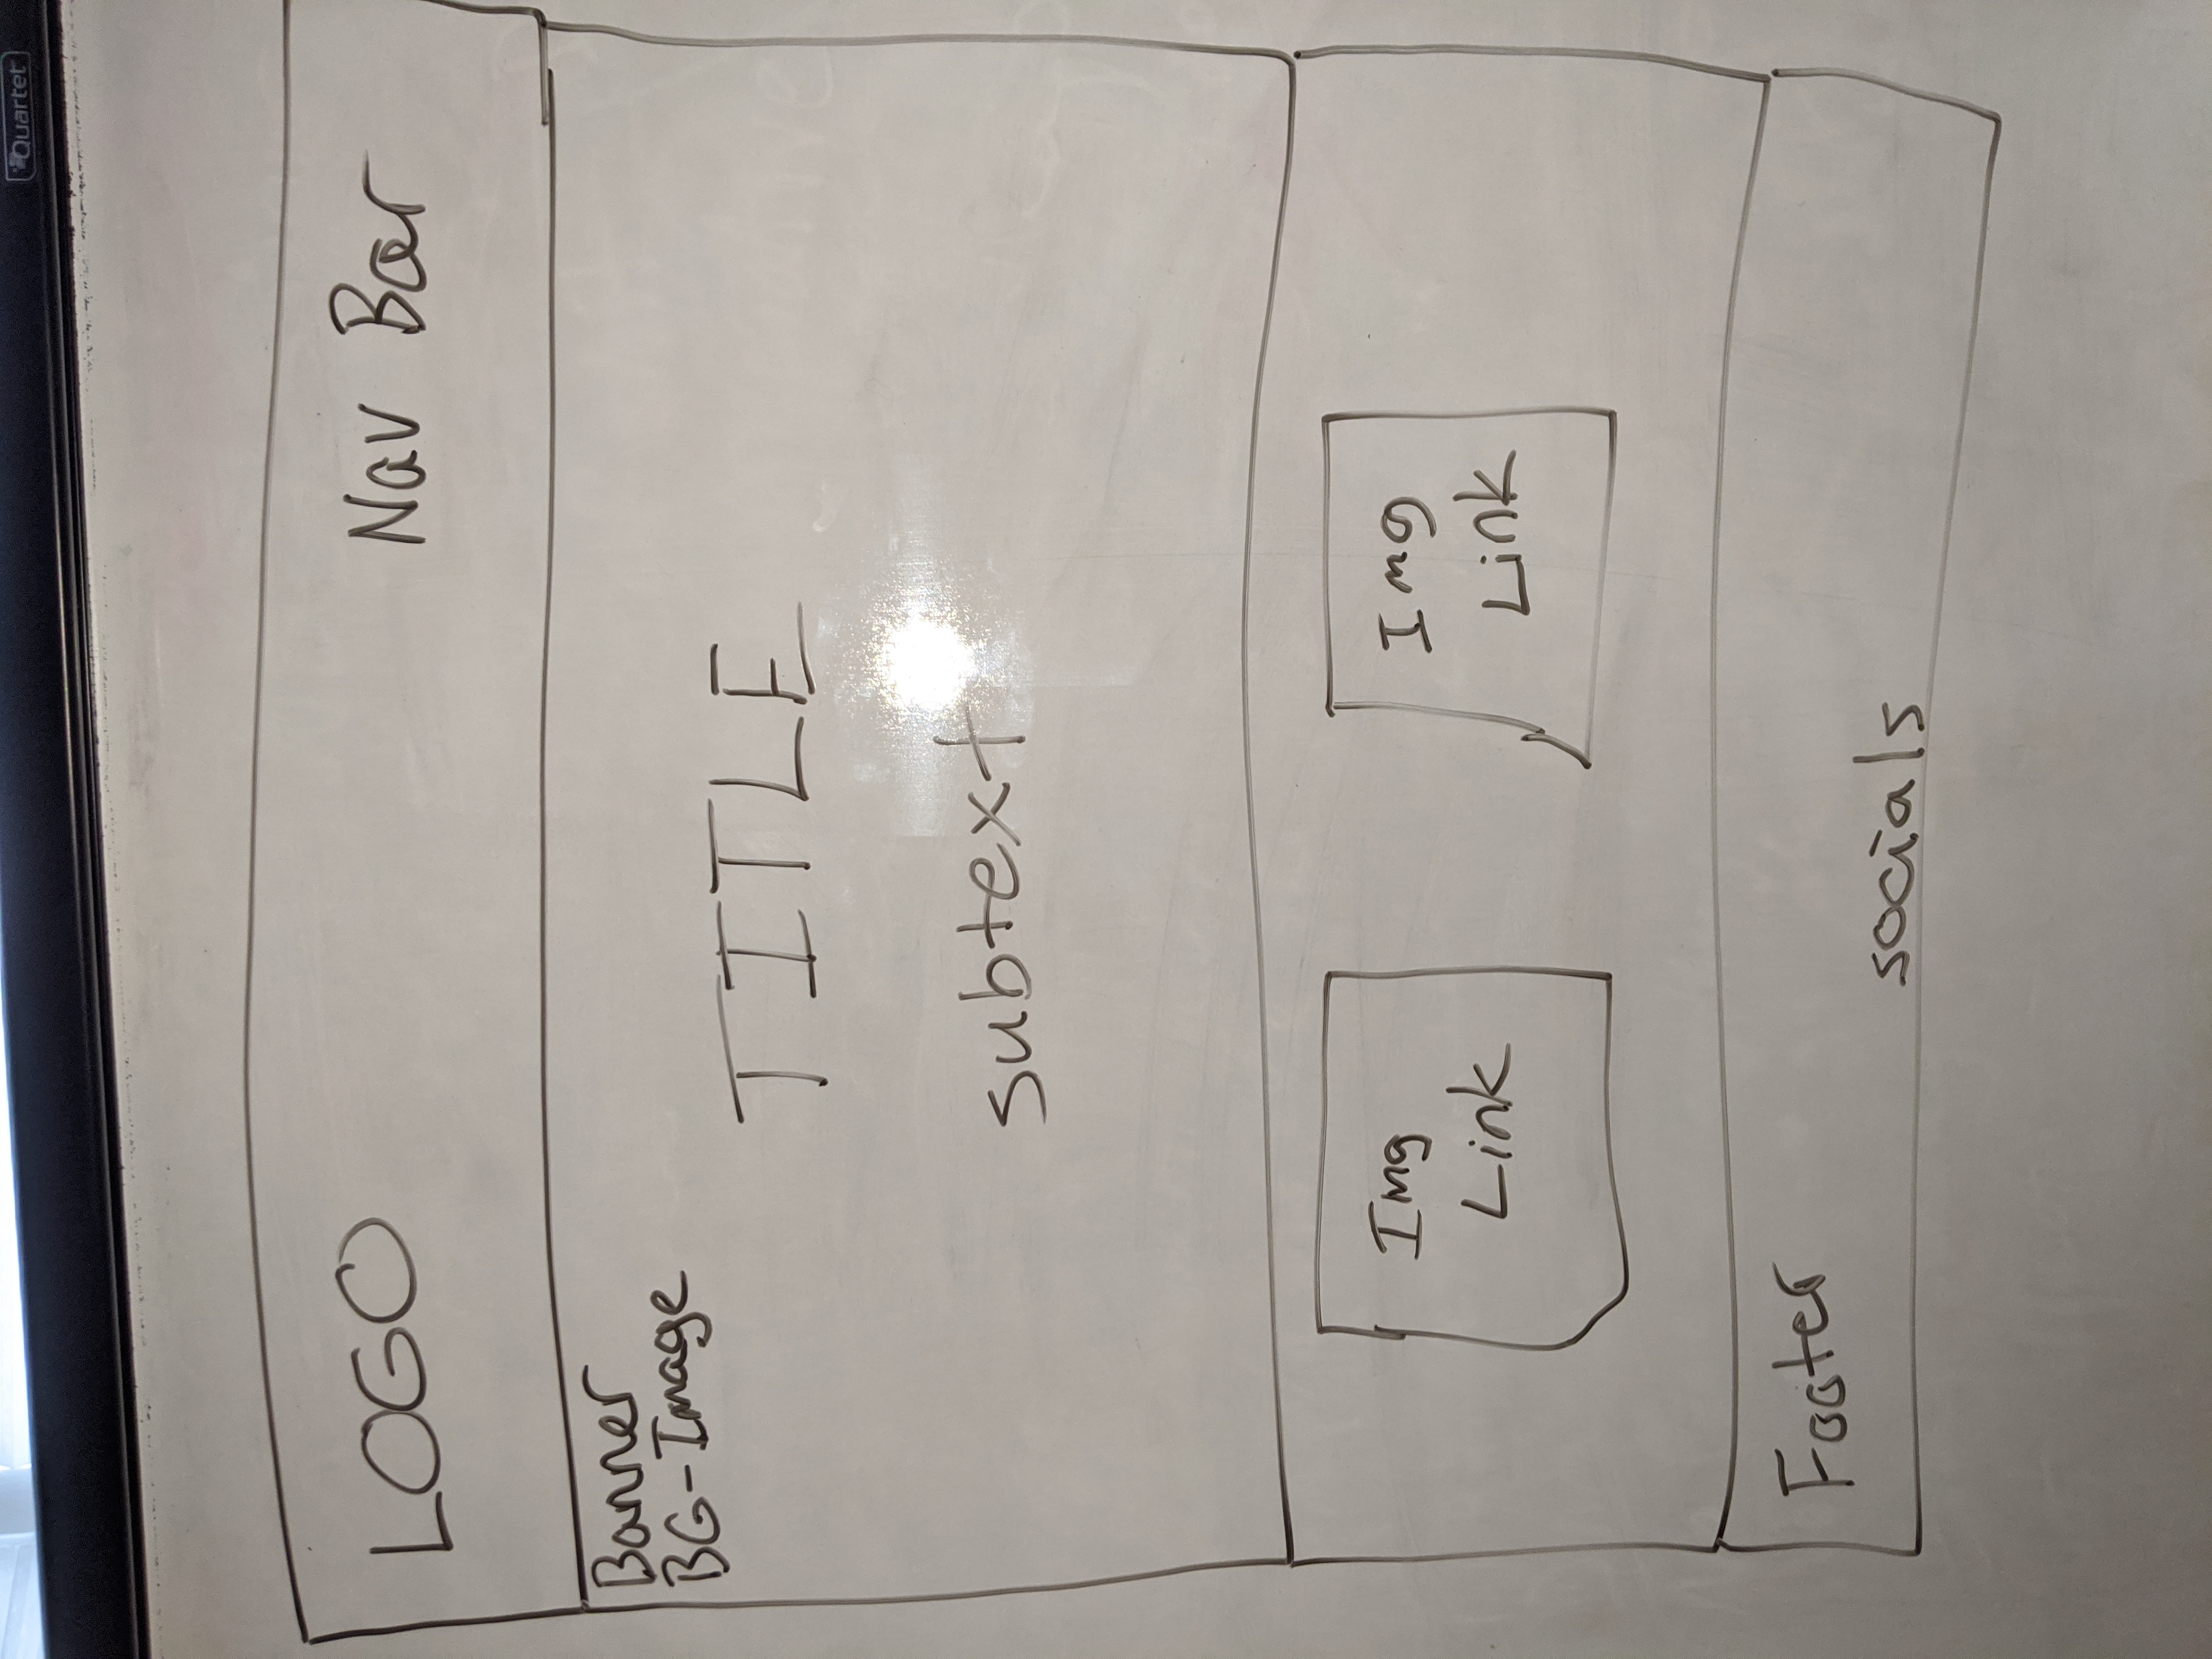 Quartet
LOGO
Nav Bar
Banner
BG-Image
TITLE
subtext
Img
Link
Img
Link
Footer
socials